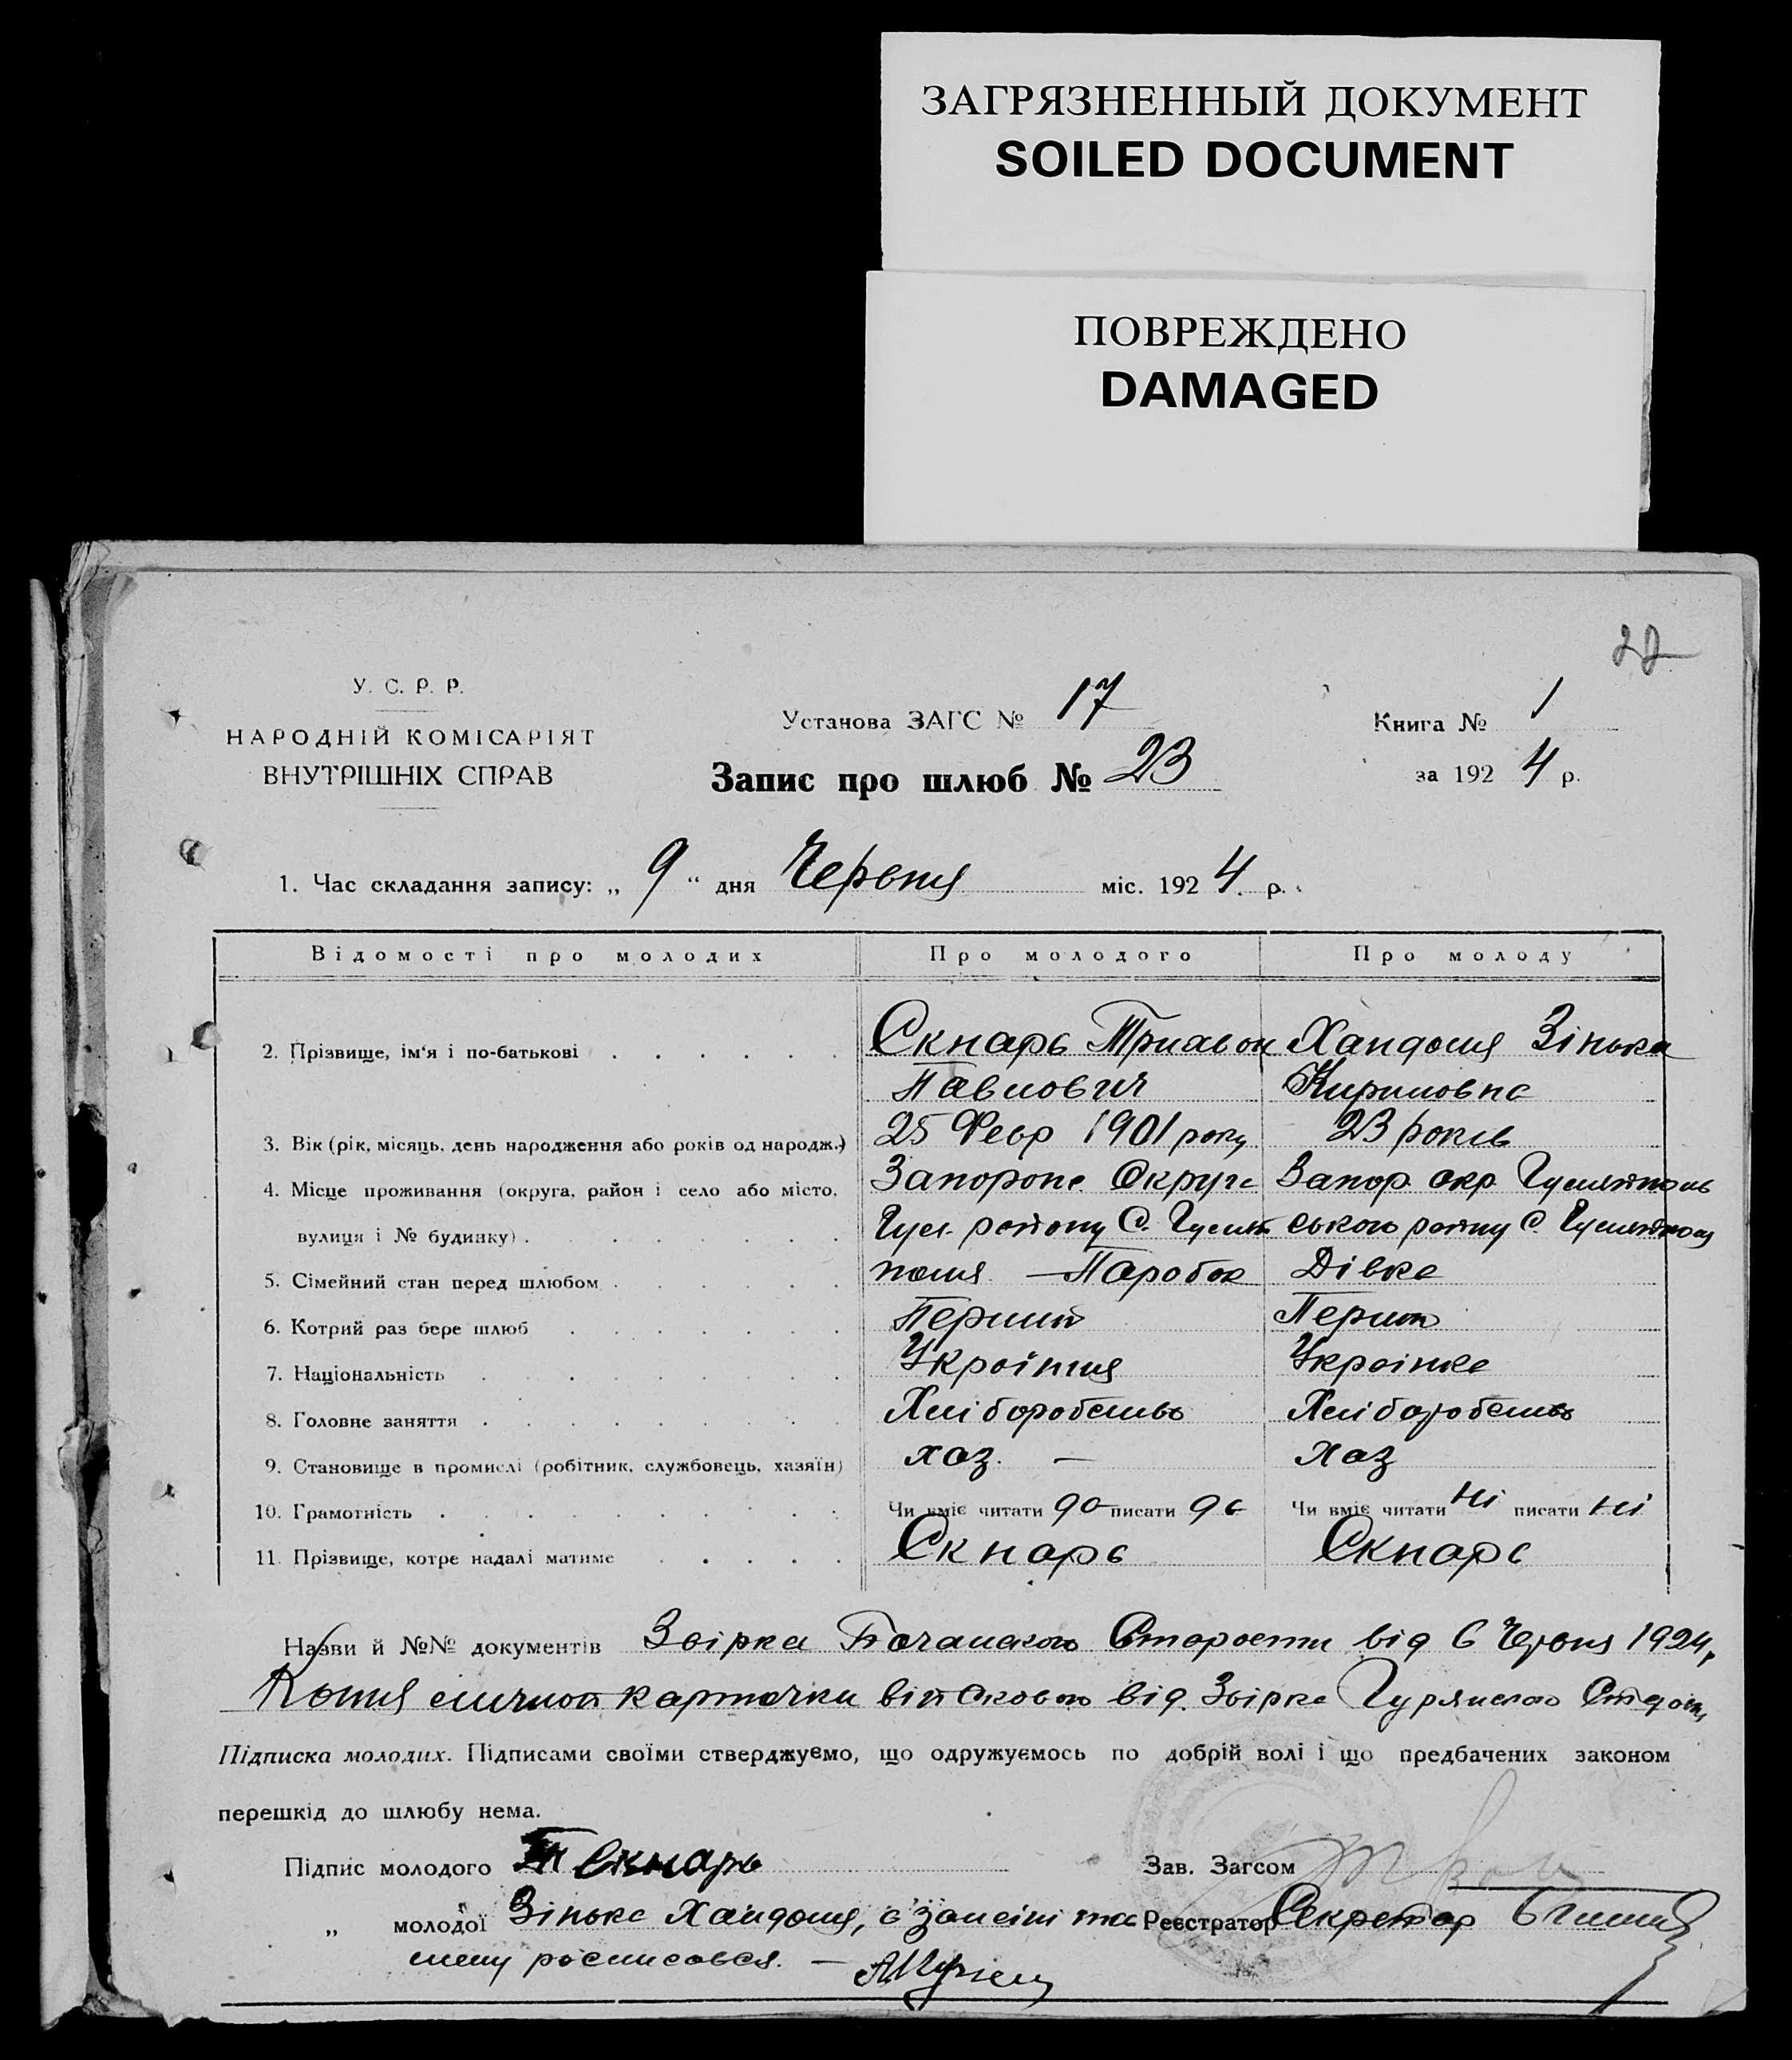 ЗАГРЯЗНЕННЫЙ ДОКУМЕНТ
SOILED DOCUMENT
ПОВРЕЖДЕНО
DAMAGED
22
У. С. Р. Р.
НАРОДНІЙ КОМІСАРІЯТ
ВНУТРІШНІХ СПРАВ
Установа ЗАГС № 17
Запис про шлюб № 23
Книга № 1
за 1924 р.
1. Час складання запису: „ 9 “ дня Червня міс. 1924 р.
Відомості про молодих Про молодого Про молоду
2. Прізвище, ім'я і по-батькові Скнарь Хандоля Зінька
Павлович Кириловна
3. Вік (рік, місяць, день народження або років од народж.) 25 Февр 1901 року 23 років
4. Місце проживання (округа, район і село або місто, Запорож. Округи Запор окр Гуляйполь
вулиця і № будинку) Гул. району С. Гуляй ського району С. Гуляйполя
5. Сімейний стан перед шлюбом поля — Паробок Дівка
6. Котрий раз бере шлюб Перший Перший
7. Національність Українця Українка
8. Головне заняття Хліборобство Хліборобство
9. Становище в промислі (робітник, службовець, хазяїн) хаз. — хаз
10. Грамотність Чи вміє читати да писати да Чи вміє читати Ні писати Ні
11. Прізвище, котре надалі матиме Скнарь Скнарь
Назви й №№ документів Звірка Старости від 6 Червня 1924,
Копия карточки від Звірка
Підписка молодих. Підписами своїми стверджуємо, що одружуємось по добрій волі і що предбачених законом
перешкід до шлюбу нема.
Підпис молодого Скнарь Зав. Загсом
„ молодої Зінька Хандоля, а за Реєстратор Секретар
росписався. —